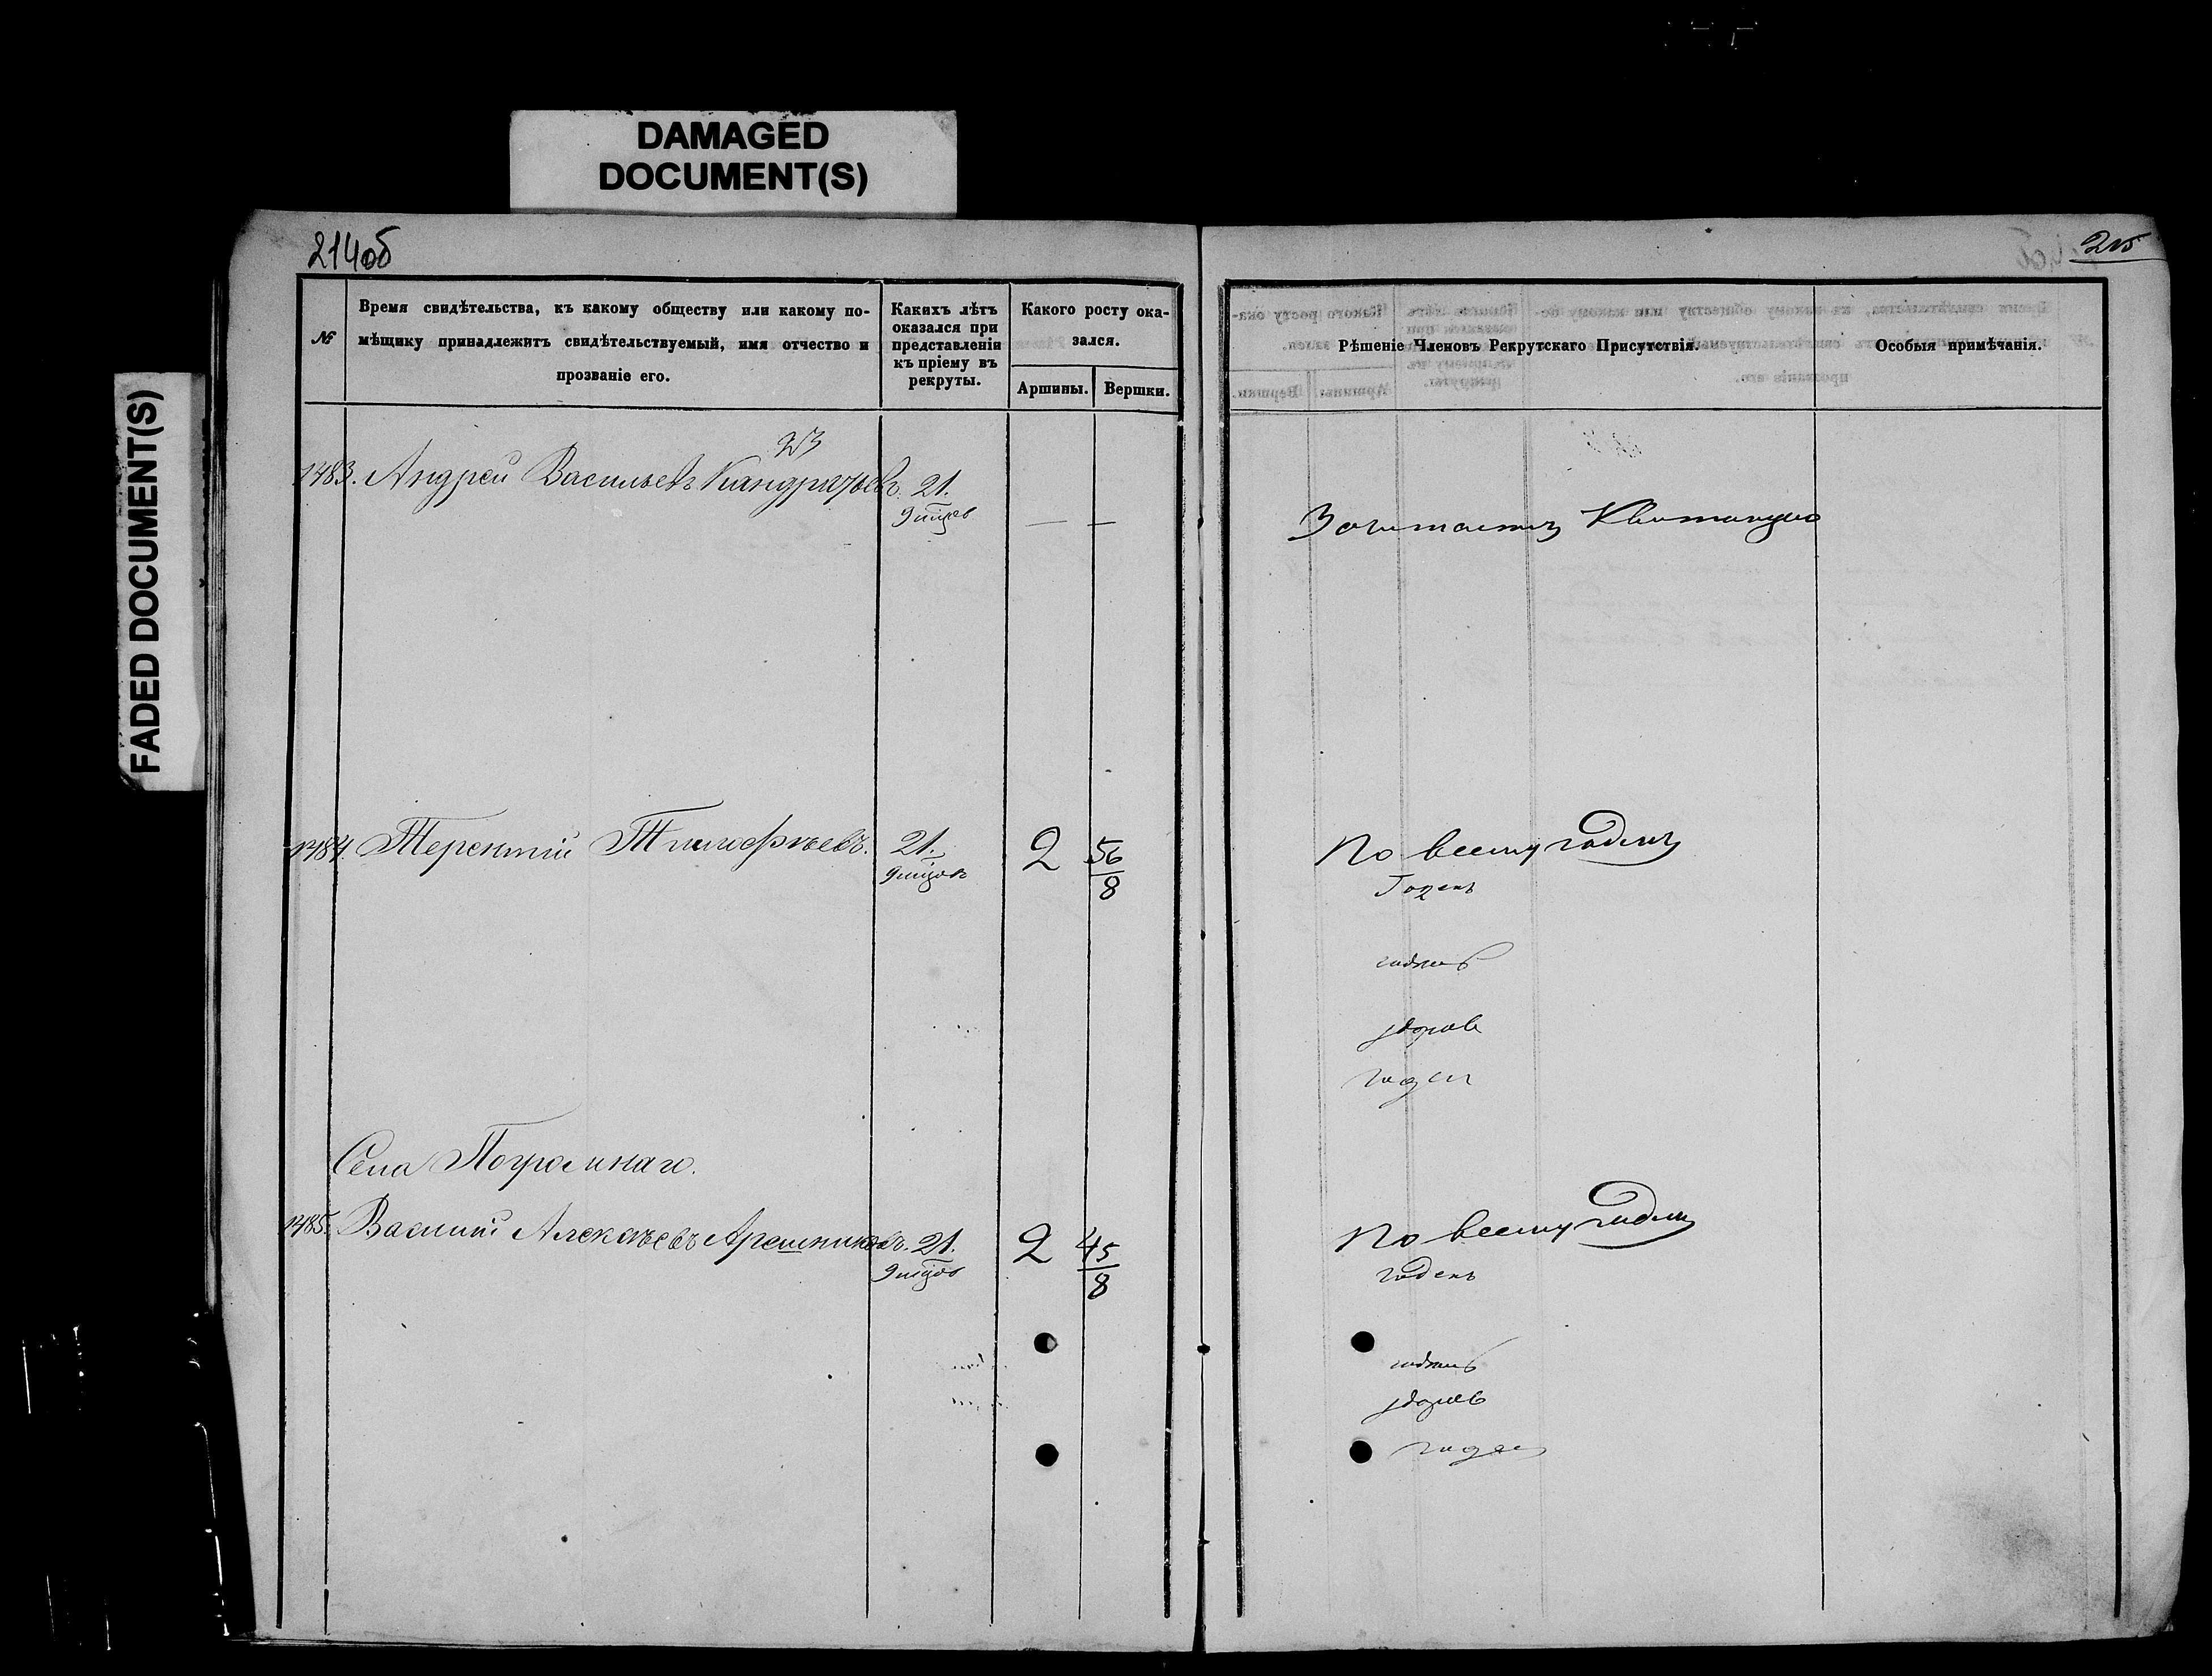 DAMAGED
DOCUMENT(S)
FADED DOCUMENT(S)
214об
№
Время свидѣтельства, къ какому обществу или какому по-
мѣщику принадлежитъ свидѣтельствуемый, имя отчество и
прозваніе его.
Какихъ лѣтъ
оказался при
представленіи
къ пріему въ
рекруты.
Какого росту ока-
зался.
Аршины.
Вершки.
1483. Андрей Васильевъ Кандратьевъ. 21.
— —
1484. Терентий Тимофѣевъ. 21. 2 5 6/8
Села
1485. Василий Алексѣевъ 21. 2 4 5/8
215
Рѣшеніе Членовъ Рекрутскаго Присутствія.
Особыя примѣчанія.
Зачитаетъ Квитанцію
По всему годенъ
Годенъ
годенъ
здоровъ
годен
По всему годенъ
годенъ
годенъ
здоровъ
годен